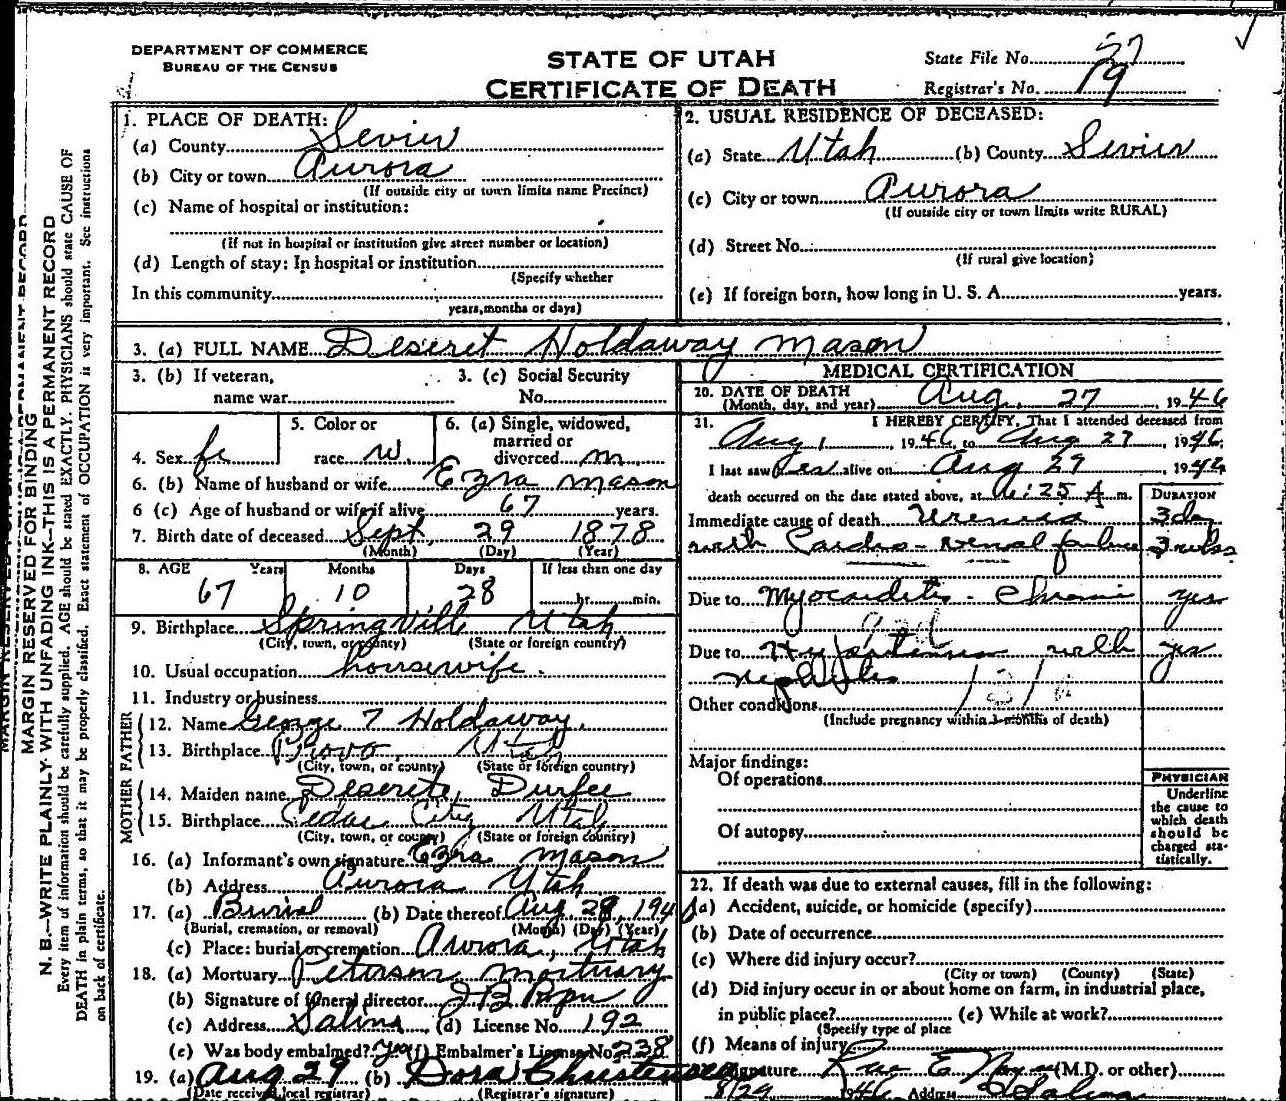 DEPARTMENT OF COMMERCE
BUREAU OF THE CENSUS
STATE OF UTAH
CERTIFICATE OF DEATH
State File No. 27
Registrar's No. 19
1. PLACE OF DEATH:
(a) County Sevier
(b) City or town Aurora
(If outside city or town limits name Precinct)
(c) Name of hospital or institution:
(If not in hospital or institution give street number or location)
(d) Length of stay: In hospital or institution
(Specify whether
In this community
years, months or days)
2. USUAL RESIDENCE OF DECEASED:
(a) State Utah (b) County Sevier
(c) City or town Aurora
(If outside city or town limits write RURAL)
(d) Street No.
(If rural give location)
(e) If foreign born, how long in U. S. A. years.
3. (a) FULL NAME Deseret Holdaway Mason
3. (b) If veteran,
name war
3. (c) Social Security
No.
4. Sex fe
5. Color or
race w
6. (a) Single, widowed,
married or
divorced m
6. (b) Name of husband or wife Ezra Mason
6 (c) Age of husband or wife if alive 67 years.
7. Birth date of deceased Sept. 29 1878
(Month) (Day) (Year)
8. AGE Years Months Days If less than one day
67 10 28 hr. min.
9. Birthplace Springville Utah
(City, town, or county) (State or foreign country)
10. Usual occupation housewife.
11. Industry or business
FATHER
12. Name George T Holdaway.
13. Birthplace Provo, Utah
(City, town, or county) (State or foreign country)
MOTHER
14. Maiden name Deserete Durfee
15. Birthplace Cedar City Utah
(City, town, or county) (State or foreign country)
16. (a) Informant's own signature Ezra Mason
(b) Address Aurora Utah
17. (a) Burial (b) Date thereof Aug. 29, 1946
(Burial, cremation, or removal) (Month) (Day) (Year)
(c) Place: burial or cremation Aurora, Utah
18. (a) Mortuary Peterson Mortuary
(b) Signature of funeral director J B
(c) Address Salina (d) License No. 192
(e) Was body embalmed? yes (f) Embalmer's License No. 238
19. (a) Aug 29 (b) Dora Christensen
(Date received local registrar) (Registrar's signature)
MEDICAL CERTIFICATION
20. DATE OF DEATH
(Month, day, and year) Aug. 27, 1946
21. I HEREBY CERTIFY, That I attended deceased from
Aug 1, 1946, to Aug 27, 1946,
I last saw her alive on Aug 27, 1946
death occurred on the date stated above, at 6:25 A m.
DURATION
Immediate cause of death Uremia 3 day
with Cardio-renal failure 3 wks.
Due to Myocarditis - Chronic yrs
Due to Hypertension with yrs
Nephritis 131a
Other conditions
(Include pregnancy within 3 months of death)
Major findings:
Of operations
Of autopsy
PHYSICIAN
Underline
the cause to
which death
should be
charged sta-
tistically.
22. If death was due to external causes, fill in the following:
(a) Accident, suicide, or homicide (specify)
(b) Date of occurrence
(c) Where did injury occur?
(City or town) (County) (State)
(d) Did injury occur in or about home on farm, in industrial place,
in public place? (e) While at work?
(Specify type of place
(f) Means of injury
Signature Rae E. Noyes (M.D. or other)
8/29 1946 Address Salina
MARGIN RESERVED FOR BINDING
N. B.—WRITE PLAINLY WITH UNFADING INK—THIS IS A PERMANENT RECORD
Every item of information should be carefully supplied. AGE should be stated EXACTLY. PHYSICIANS should state CAUSE OF
DEATH in plain terms, so that it may be properly classified. Exact statement of OCCUPATION is very important. See instructions
on back of certificate.